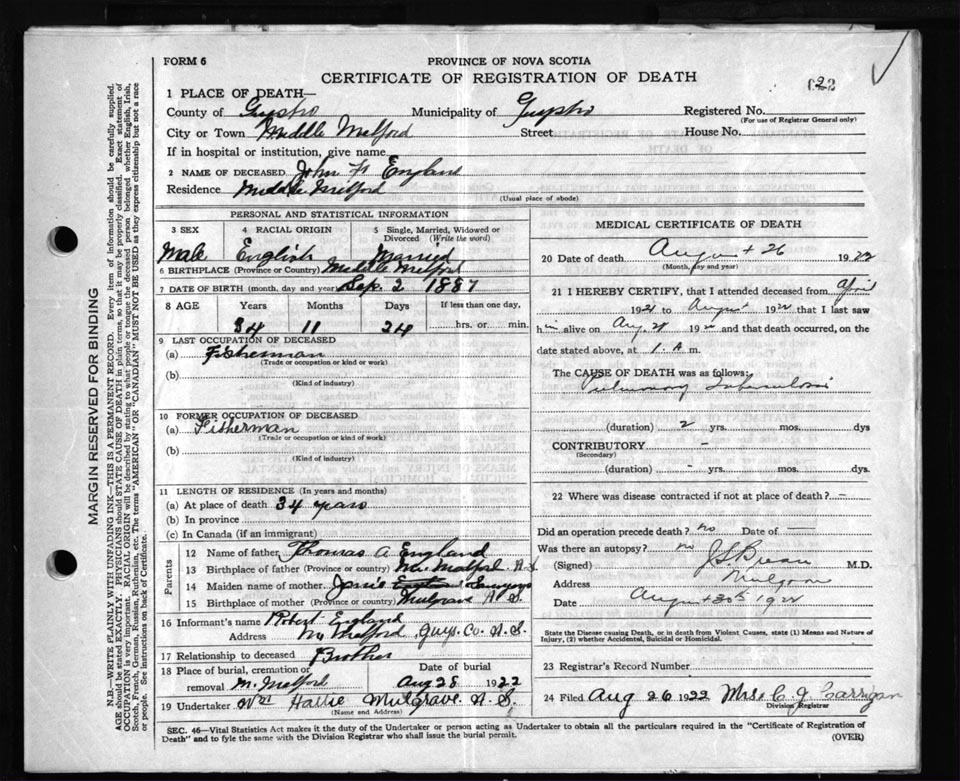 FORM 6
PROVINCE OF NOVA SCOTIA
CERTIFICATE OF REGISTRATION OF DEATH
1 PLACE OF DEATH—
County of Guysbro Municipality of Guysbro Registered No.
(For use of Registrar General only)
City or Town Middle Melford Street House No.
If in hospital or institution, give name
2 NAME OF DECEASED John H England
Residence Middle Melford
(Usual place of abode)
PERSONAL AND STATISTICAL INFORMATION
3 SEX 4 RACIAL ORIGIN 5 Single, Married, Widowed or Divorced (Write the word)
Male English Married
6 BIRTHPLACE (Province or Country) Middle Melford
7 DATE OF BIRTH (month, day and year) Sep. 2 1887
8 AGE Years Months Days If less than one day,
34 11 24 hrs. or min.
9 LAST OCCUPATION OF DECEASED
(a) Fisherman
(Trade or occupation or kind or work)
(b)
(Kind of industry)
10 FORMER OCCUPATION OF DECEASED
(a) Fisherman
(Trade or occupation or kind of work)
(b)
(Kind of industry)
11 LENGTH OF RESIDENCE (In years and months)
(a) At place of death 34 years
(b) In province
(c) In Canada (if an immigrant)
Parents
12 Name of father Thomas A England
13 Birthplace of father (Province or country) M. Melford N.S
14 Maiden name of mother
15 Birthplace of mother (Province or country) Mulgrave N.S.
16 Informant's name Robert England
Address M Melford, Guys. Co. N.S.
17 Relationship to deceased Brother
18 Place of burial, cremation or removal M. Melford Date of burial Aug 28 1922
19 Undertaker Wm Hattie Mulgrave N.S.
(Name and Address)
MEDICAL CERTIFICATE OF DEATH
20 Date of death August 26 1922
(Month, day and year)
21 I HEREBY CERTIFY, that I attended deceased from April
1921 to August 1922 that I last saw
him alive on Aug 1922 and that death occurred, on the
date stated above, at 1. A m.
The CAUSE OF DEATH was as follows:
Pulmonary Tuberculosis
(duration) 2 yrs. mos. dys
CONTRIBUTORY -
(Secondary)
(duration) - yrs. mos. dys.
22 Where was disease contracted if not at place of death? -
Did an operation precede death? no Date of —
Was there an autopsy? no
(Signed) M.D.
Address Mulgrave
Date August 30th 1922
State the Disease causing Death, or in death from Violent Causes, state (1) Means and Nature of Injury, (2) whether Accidental, Suicidal or Homicidal.
23 Registrar's Record Number
24 Filed Aug 26 1922 Mrs C. J. Carrigan
Division Registrar
SEC. 46—Vital Statistics Act makes it the duty of the Undertaker or person acting as Undertaker to obtain all the particulars required in the "Certificate of Registration of
Death" and to fyle the same with the Division Registrar who shall issue the burial permit.
(OVER)
MARGIN RESERVED FOR BINDING
N.B.—WRITE PLAINLY WITH UNFADING INK—THIS IS A PERMANENT RECORD. Every item of information should be carefully supplied.
AGE should be stated EXACTLY. PHYSICIANS should STATE CAUSE OF DEATH in plain terms, so that it may be properly classified. Exact statement of
OCCUPATION is very important. RACIAL ORIGIN will be described by stating to what people or tongue the deceased person belonged whether English, Irish,
Scotch, French, German, Russian, Ruthenian, etc. The terms "AMERICAN" OR "CANADIAN" MUST NOT BE USED as they express citizenship but not a race
or people. See instructions on back of Certificate.